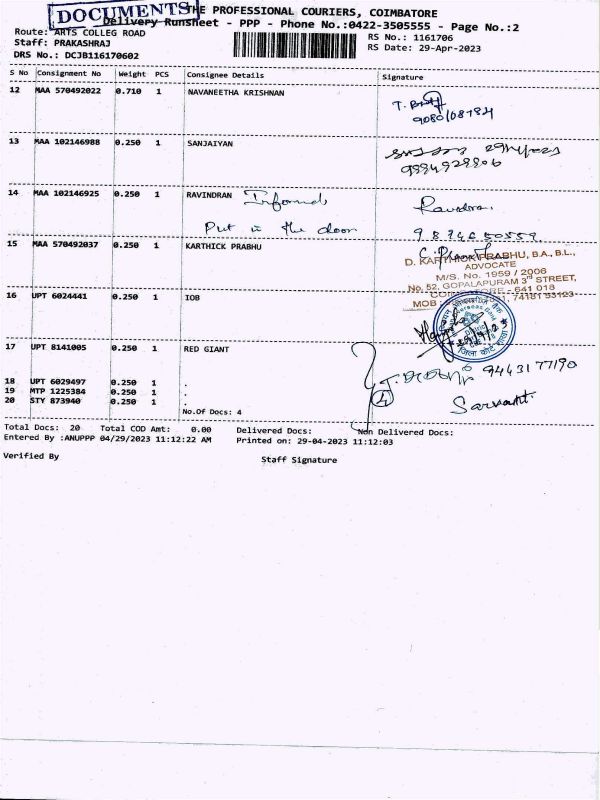 DOCUMENTS
THE PROFESSIONAL COURIERS, COIMBATORE
Delivery Runsheet - PPP - Phone No.:0422-3505555 - Page No.:2
Route: ARTS COLLEG ROAD
RS No.: 1161706
Staff: PRAKASHRAJ
RS Date: 29-Apr-2023
DRS No.: DCJB116170602
S No Consignment No Weight PCS Consignee Details Signature
12 MAA 570492022 0.710 1 NAVANEETHA KRISHNAN
13 MAA 102146988 0.250 1 SANJAIYAN
14 MAA 102146925 0.250 1 RAVINDRAN Informed
Put in the door
15 MAA 570492037 0.250 1 KARTHICK PRABHU
D. KARTHICK PRABHU, B.A., B.L.,
ADVOCATE
M/S. No. 1959 / 2006
No. 52, GOPALAPURAM 3rd STREET,
COIMBATORE - 641 018
MOB : 74181 93123
16 UPT 6024441 0.250 1 IOB
17 UPT 8141005 0.250 1 RED GIANT
9443177190
18 UPT 6029497 0.250 1 .
19 MTP 1225384 0.250 1 .
20 STY 873940 0.250 1 .
4
No.Of Docs: 4
Total Docs: 20 Total COD Amt: 0.00 Delivered Docs: Non Delivered Docs:
Entered By :ANUPPP 04/29/2023 11:12:22 AM Printed on: 29-04-2023 11:12:03
Verified By Staff Signature